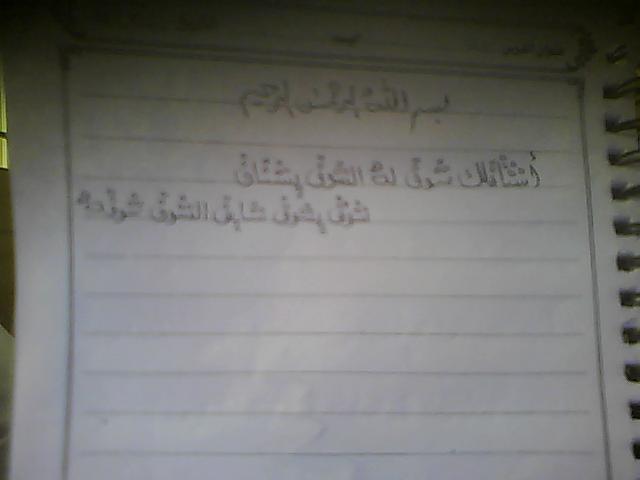 بسم الله الرحمن الرحيم
أشتاقلك شوق له الشوق يشتاق
شوق يشوق شايق الشوق شوقه